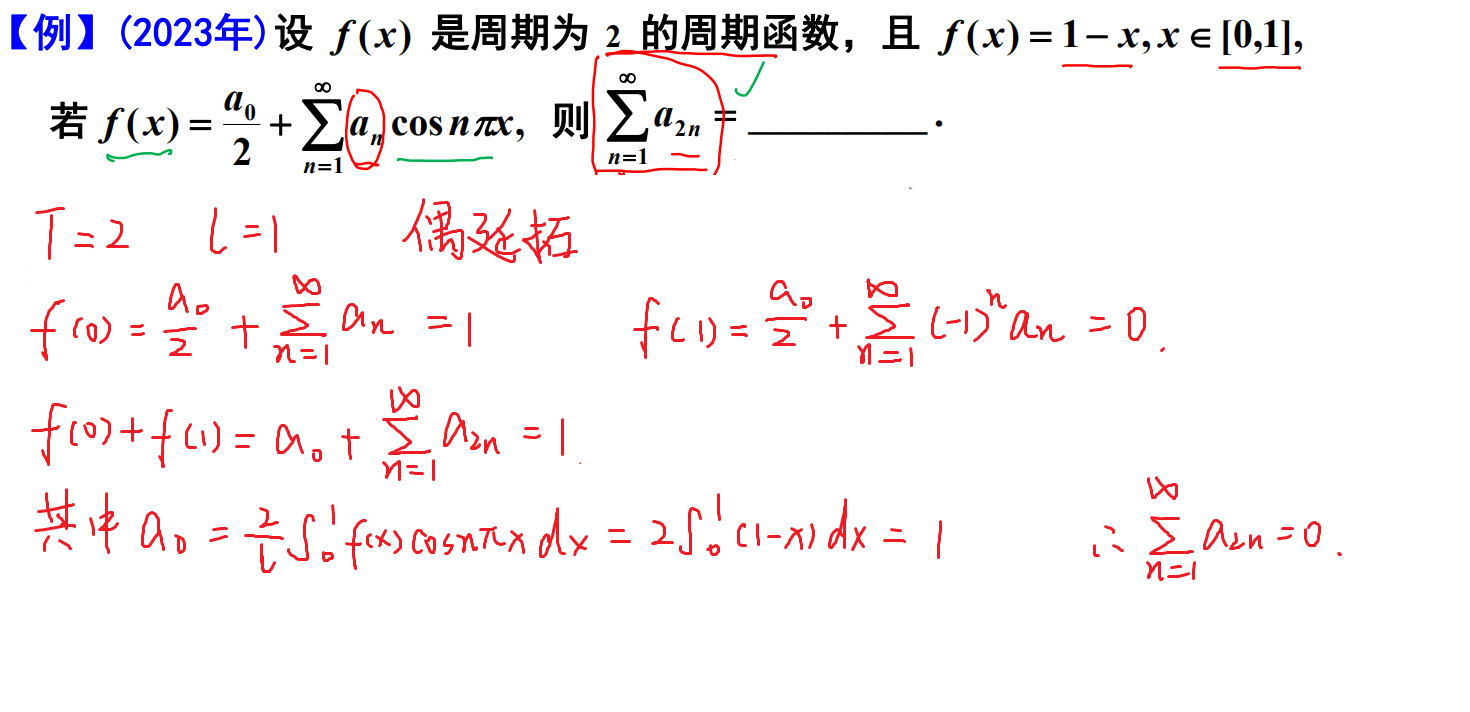 【例】(2023年)设 f(x) 是周期为 2 的周期函数，且 f(x)=1−x, x∈[0,1],
若 f(x)=a₀/2+∑_{n=1}^{∞} aₙ cos nπx, 则 ∑_{n=1}^{∞} a₂ₙ = ________.
T=2 l=1 偶延拓
f(0)=a₀/2+∑_{n=1}^{∞} aₙ =1 f(1)=a₀/2+∑_{n=1}^{∞} (-1)ⁿaₙ =0.
f(0)+f(1)=a₀+2∑_{n=1}^{∞} a₂ₙ =1
其中 a₀=2/l ∫₀¹ f(x)cosnπx dx=2∫₀¹ (1-x)dx=1 ∴ ∑_{n=1}^{∞} a₂ₙ=0.